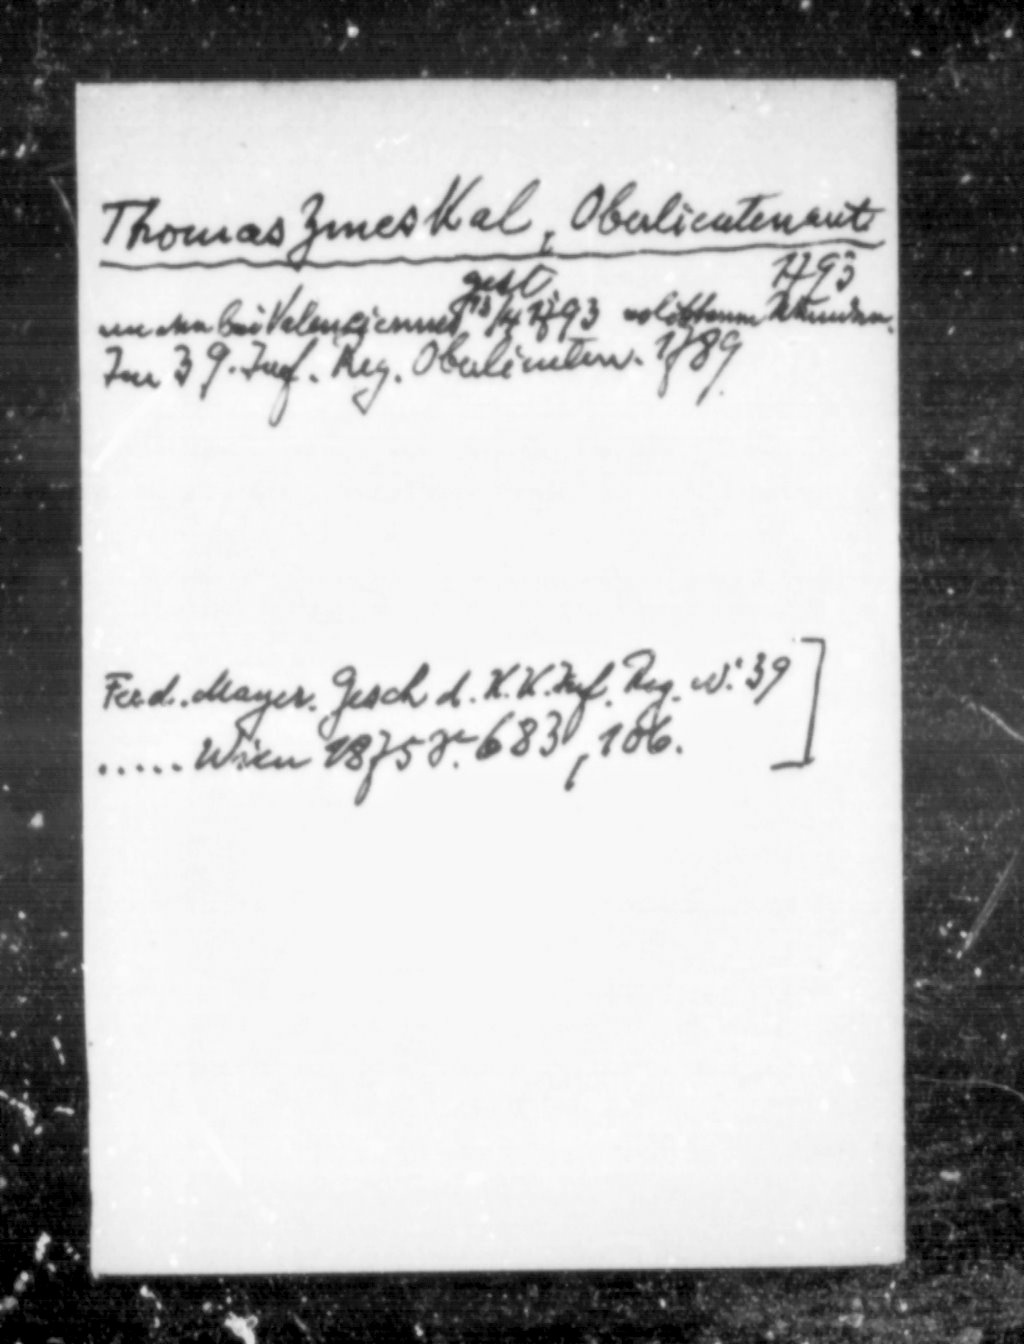 Thomas Zmeskal, Oberlieutenant
gest 1793
an den bei Valenciennes 1793 erlittenen Wunden.
Im 39. Inf. Reg. Oberlieuten. 1789.
Ferd. Mayer. Gesch d. K. K. Inf. Reg. N. 39
..... Wien 1875 S. 683, 106.